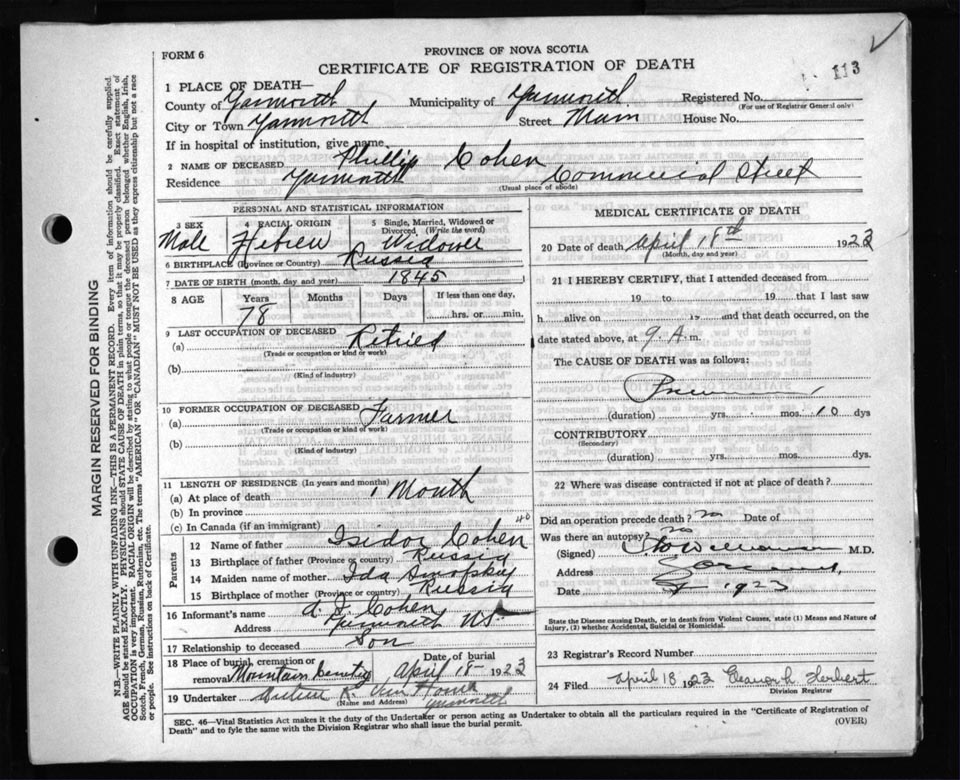 113
FORM 6
PROVINCE OF NOVA SCOTIA
CERTIFICATE OF REGISTRATION OF DEATH
1 PLACE OF DEATH—
County of Yarmouth Municipality of Yarmouth Registered No.
(For use of Registrar General only)
City or Town Yarmouth Street Main House No.
If in hospital of institution, give name
2 NAME OF DECEASED Phillip Cohen
Residence Yarmouth Commercial Street
(Usual place of abode)
PERSONAL AND STATISTICAL INFORMATION
3 SEX 4 RACIAL ORIGIN 5 Single, Married, Widowed or
Divorced (Write the word)
Male Hebrew Widower
6 BIRTHPLACE (Province or Country) Russia
7 DATE OF BIRTH (month, day and year) 1845
8 AGE Years Months Days If less than one day,
78 hrs. or min.
9 LAST OCCUPATION OF DECEASED
(a) Retried
(Trade or occupation or kind or work)
(b)
(Kind of industry)
10 FORMER OCCUPATION OF DECEASED
(a) Farmer
(Trade or occupation or kind of work)
(b)
(Kind of industry)
11 LENGTH OF RESIDENCE (In years and months)
(a) At place of death 1 Month
(b) In province
(c) In Canada (if an immigrant) 40
Parents
12 Name of father Isidor Cohen
13 Birthplace of father (Province or country) Russia
14 Maiden name of mother Ida
15 Birthplace of mother (Province or country) Russia
16 Informant's name A. J. Cohen
Address Yarmouth NS
17 Relationship to deceased Son
18 Place of burial, cremation or Date of burial
removal Mountain Cemetry April 18 1923
19 Undertaker K. Van Horne
(Name and Address) Yarmouth
MEDICAL CERTIFICATE OF DEATH
20 Date of death April 18th 1923
(Month, day and year)
21 I HEREBY CERTIFY, that I attended deceased from
19 to 19 that I last saw
h alive on 19 and that death occurred, on
date stated above, at 9. A. m.
The CAUSE OF DEATH was as follows:
(duration) yrs. mos. 10 dys
CONTRIBUTORY
(Secondary)
(duration) yrs. mos. dys.
22 Where was disease contracted if not at place of death?
Did an operation precede death? no Date of
Was there an autopsy? no
(Signed) Williamson M.D.
Address
Date 1923
State the Disease causing Death, or in death from Violent Causes, state (1) Means and Nature of
Injury, (2) whether Accidental, Suicidal or Homicidal.
23 Registrar's Record Number
24 Filed April 18 1923 Eleanor L Herbert
Division Registrar
SEC. 46—Vital Statistics Act makes it the duty of the Undertaker or person acting as Undertaker to obtain all the particulars required in the "Certificate of Registration of
Death" and to fyle the same with the Division Registrar who shall issue the burial permit. (OVER)
MARGIN RESERVED FOR BINDING
N.B.—WRITE PLAINLY WITH UNFADING INK—THIS IS A PERMANENT RECORD. Every item of information should be carefully supplied.
AGE should be stated EXACTLY. PHYSICIANS should STATE CAUSE OF DEATH in plain terms, so that it may be properly classified. Exact statement of
OCCUPATION is very important. RACIAL ORIGIN will be described by stating to what people or tongue the deceased person belonged whether English, Irish,
Scotch, French, German, Russian, Ruthenian, etc. The terms "AMERICAN" OR "CANADIAN" MUST NOT BE USED as they express citizenship but not a race
or people. See instructions on back of Certificate.